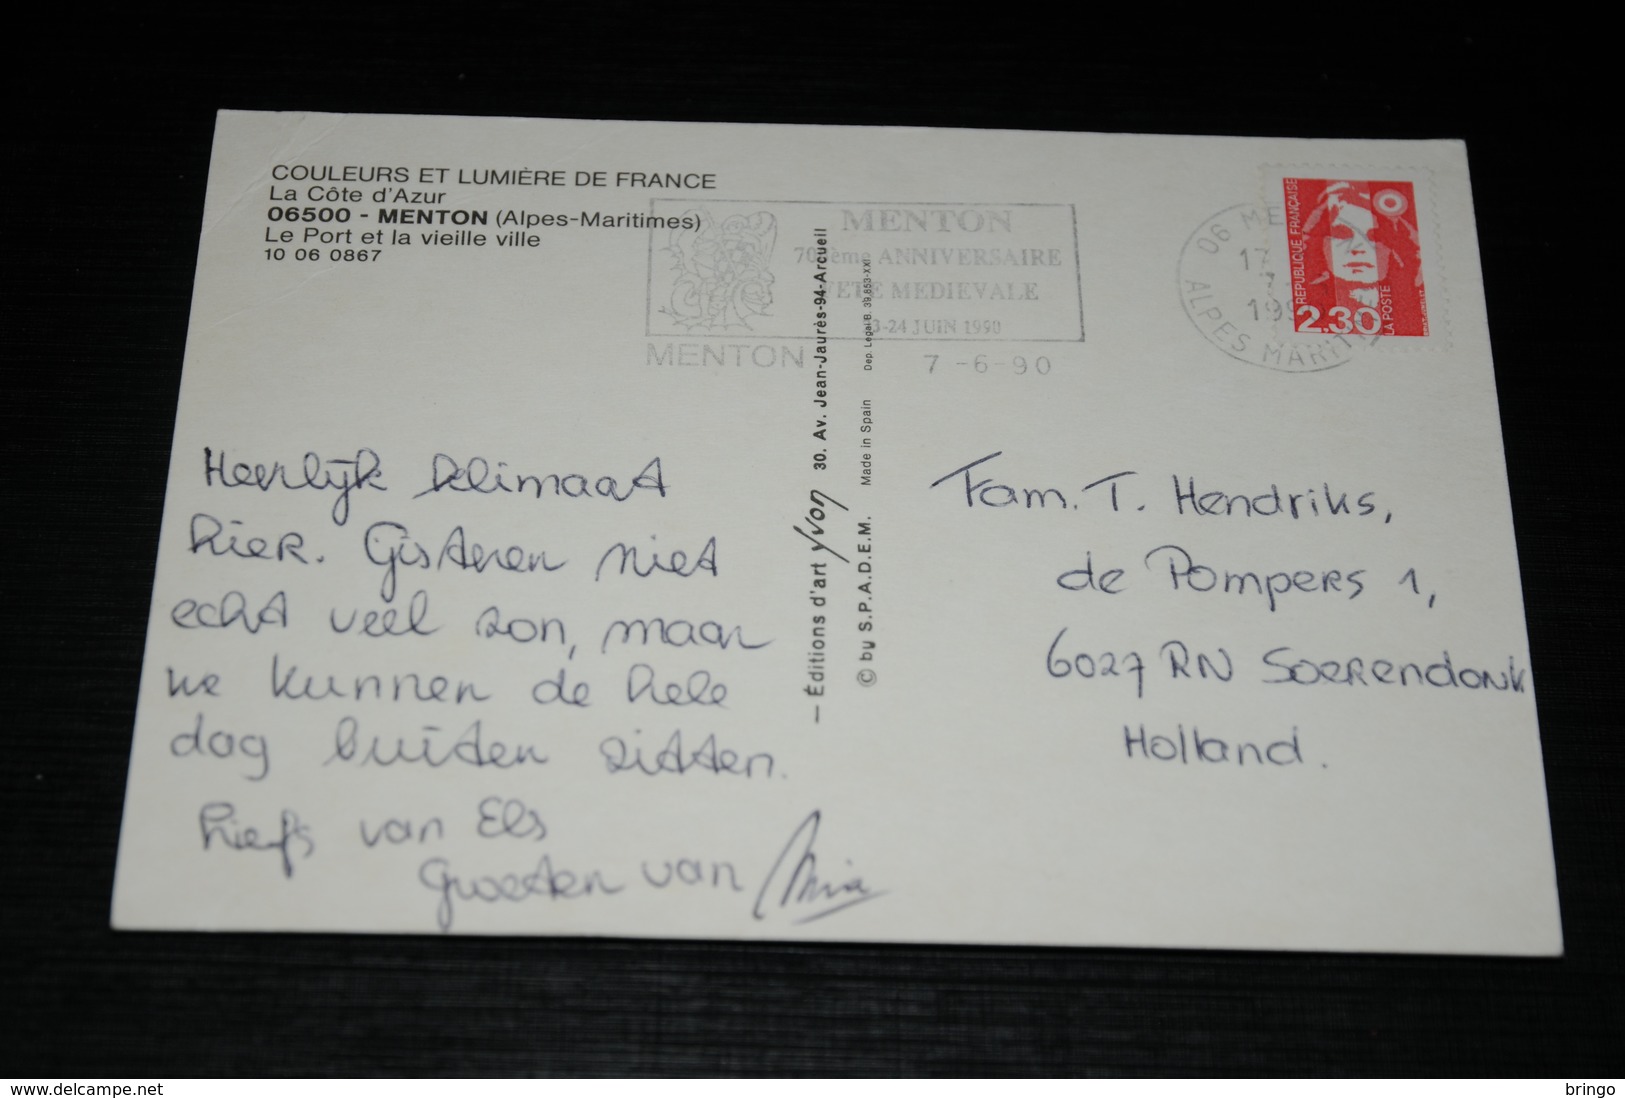 COULEURS ET LUMIÈRE DE FRANCE
La Côte d'Azur
06500 - MENTON (Alpes-Maritimes)
Le Port et la vieille ville
10 06 0867
MENTON
ANNIVERSAIRE
FETE MEDIEVALE
3-24 JUIN 1990
MENTON 7 -6-90
06 MEN
17
199
ALPES MARIT
RÉPUBLIQUE FRANÇAISE
2.30
LA POSTE
— Éditions d'art yvon 30. Av. Jean-Jaurès-94-Arcueil
© by S.P.A.D.E.M. Made in Spain Dep. Legal B. 39.853-XXI
Heerlijk klimaat
hier. Gisteren niet
echt veel zon, maar
we kunnen de hele
dag buiten zitten.
Liefs van Els
Groeten van Mia
Fam. T. Hendriks,
de Pompers 1,
6027 RN Soerendonk
Holland.
http://www.delcampe.net
bringo